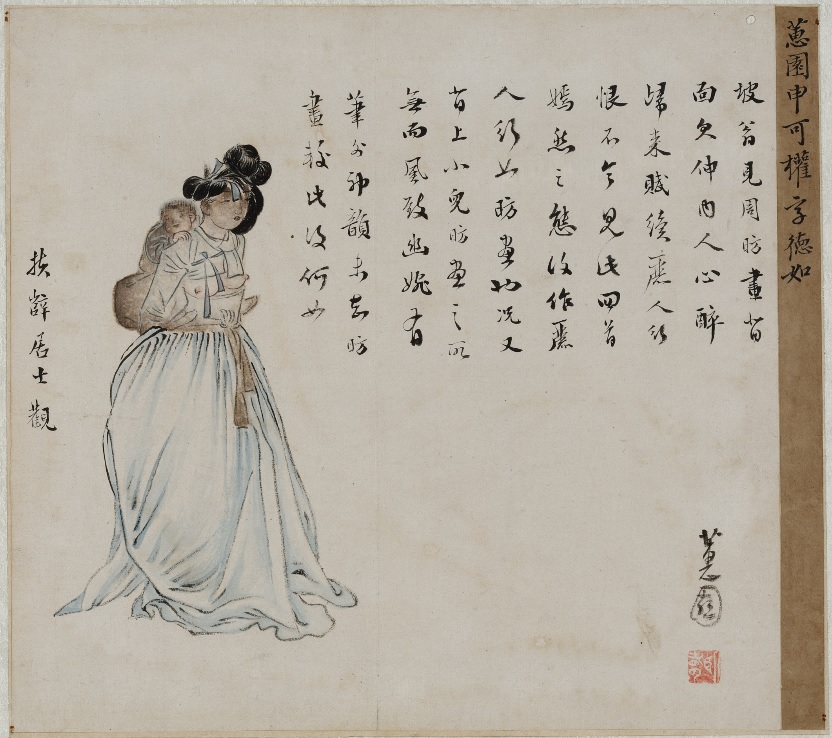 蕙園申可權字德如
坡翁見周昉畫背
面欠伸內人心醉
歸來賦續麗人行
恨不令見此回首
嫣然之態復作麗
人行如昉畫也況又
背上小兒昉畫之所
無而風致幽婉有
筆外神韻未知昉
畫較此復何如
扶辥居士觀
蕙園